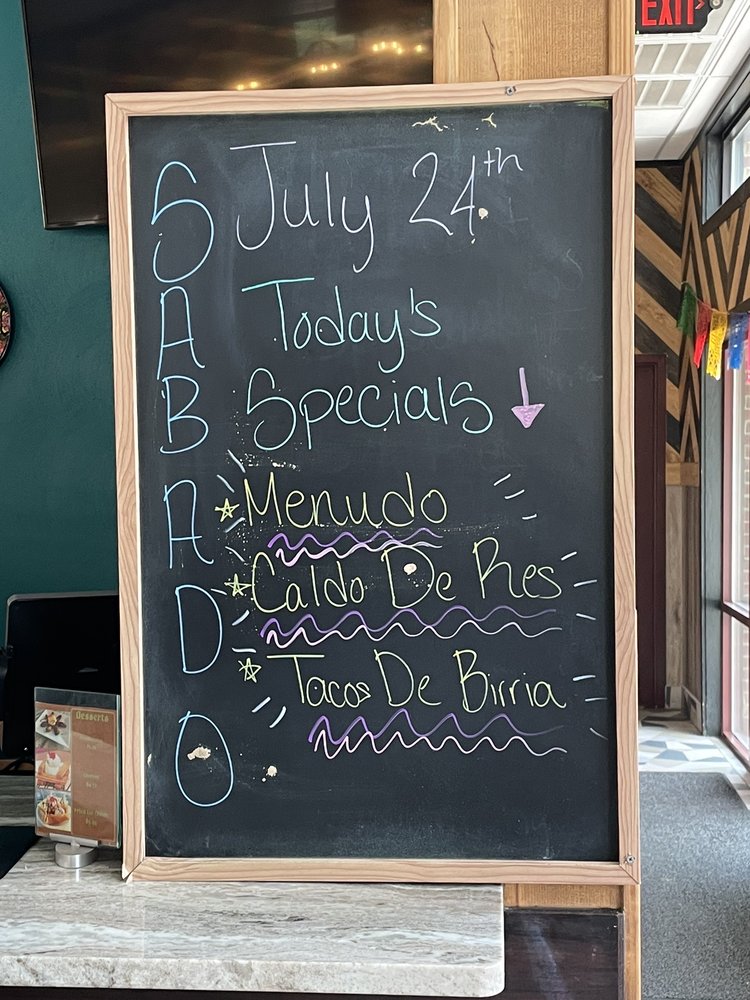 EXIT
SABADO
July 24th
Today's
Specials
Menudo
Caldo De Res
Tacos De Birria
Desserts